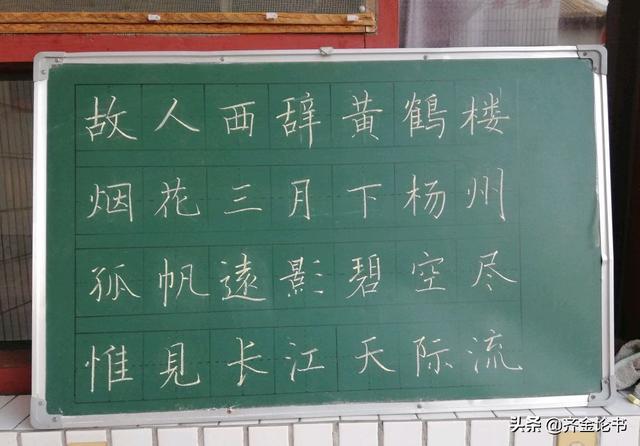 故人西辞黄鹤楼
烟花三月下杨州
孤帆遠影碧空尽
惟見长江天际流
头条 @齐金论书